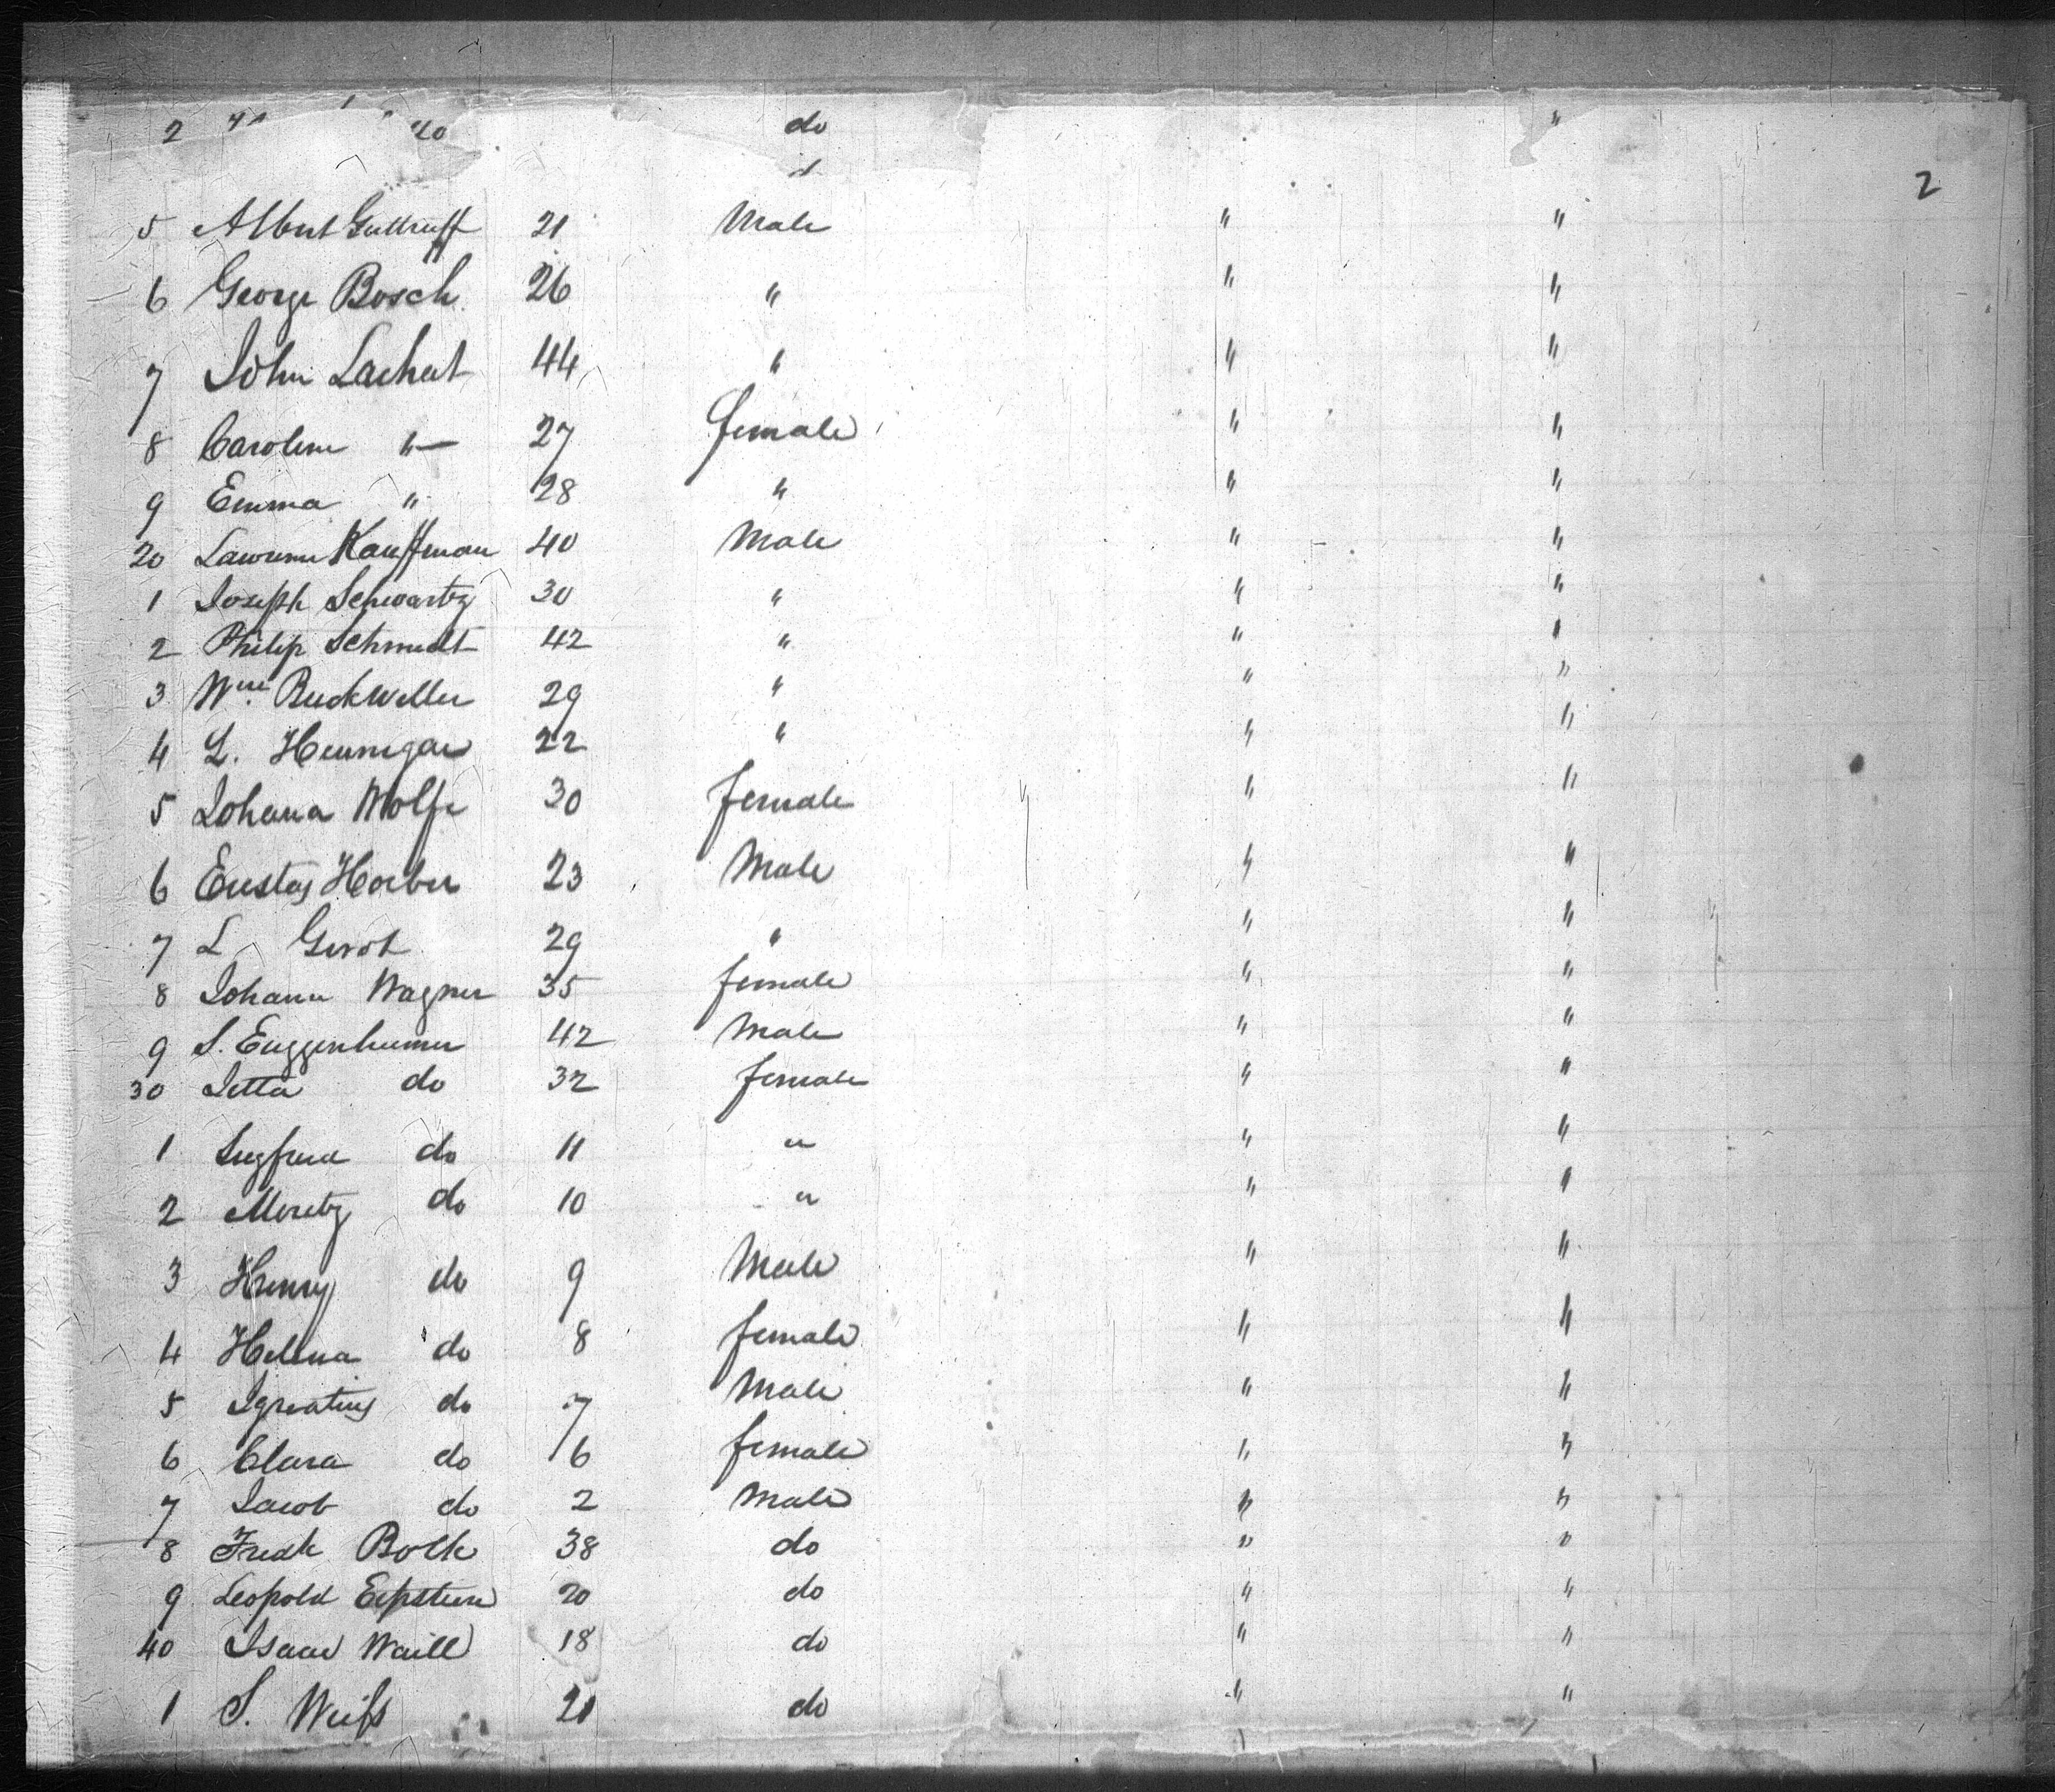 2 do "
2
5 Albert Guttruff 21 Male " "
6 George Bosch 26 " " "
7 John Lachat 44 " " "
8 Caroline " 27 female " "
9 Emma " 28 " " "
20 Lawrence Kauffman 40 Male " "
1 Joseph Schwartz 30 " " "
2 Philip Schmidt 42 " " "
3 Wm. Buckweller 29 " " "
4 L. 22 " " "
5 Johana Wolfe 30 female " "
6 Hoeber 23 Male " "
7 L Gerot 29 " " "
8 Johann Wagner 35 female " "
9 S. Euggenheimer 42 Male " "
30 Jetta do 32 female " "
1 Siegfried do 11 " " "
2 Moritz do 10 " " "
3 Henry do 9 Male " "
4 Helena do 8 female " "
5 Ignatius do 7 Male " "
6 Clara do 6 female " "
7 Jacob do 2 Male " "
8 Fredk Bolk 38 do " "
9 Leopold Eepstein 20 do " "
40 Isaac Waill 18 do " "
1 S. Weifs 21 do " "